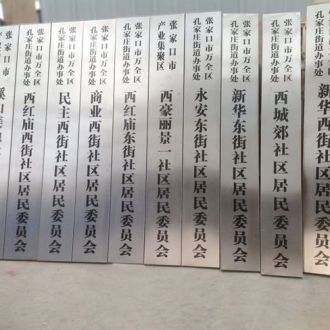 张家口市
张家口市万全区
孔家庄街道办事处
西红庙西街社区居民委员会
张家口市万全区
孔家庄街道办事处
民主西街社区居民委员会
张家口市万全区
孔家庄街道办事处
商业西街社区居民委员会
张家口市万全区
孔家庄街道办事处
西红庙东街社区居民委员会
张家口市
产业集聚区
西豪丽景一社区居民委员会
张家口市万全区
孔家庄街道办事处
永安东街社区居民委员会
张家口市万全区
孔家庄街道办事处
新华东街社区居民委员会
张家口市万全区
孔家庄街道办事处
西城郊社区居民委员会
张家口市万全区
孔家庄街道办事处
新华西街社区居民委员会